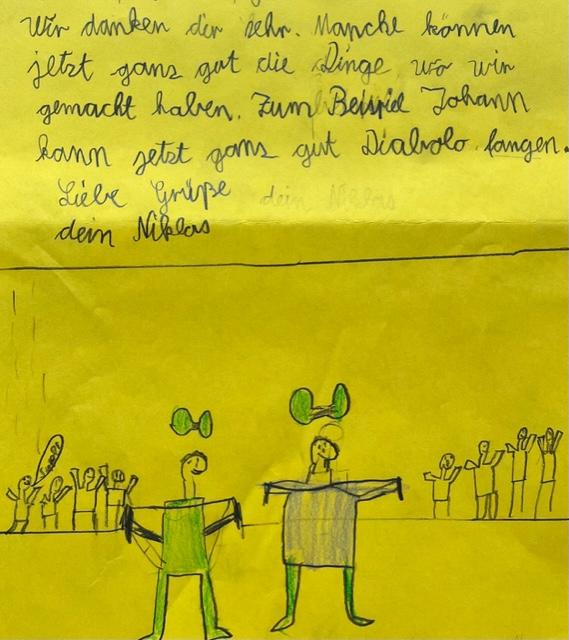 Wir danken dir sehr. Manche können
jetzt ganz gut die Dinge wo wir
gemacht haben. Zum Beispiel Johann
kann jetzt ganz gut Diabolo fangen.
Liebe Grüße dein Niklas
dein Niklas